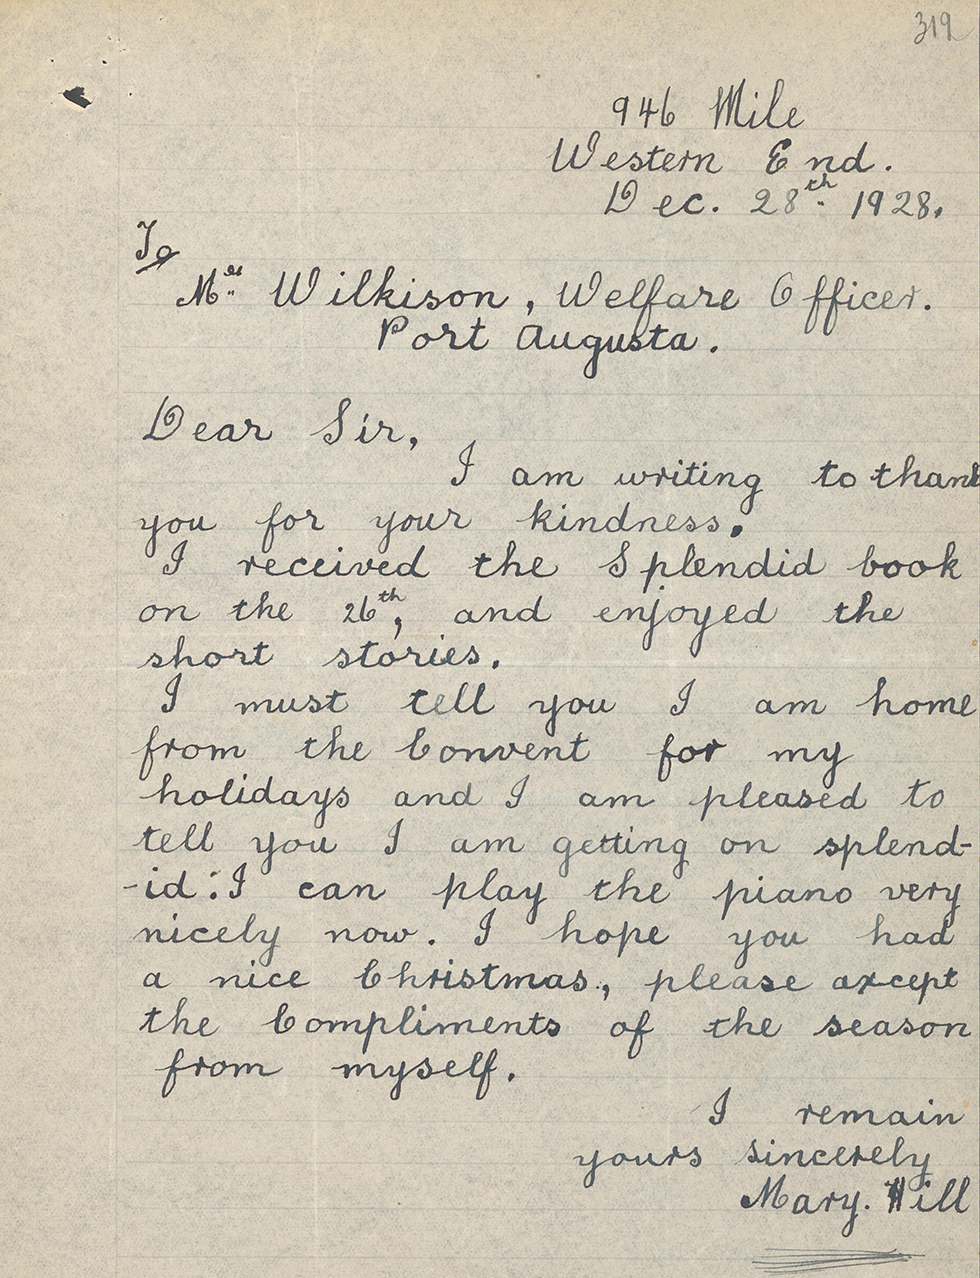 319
946 Mile
Western End.
Dec. 28th. 1928.
To
Mrs. Wilkison, Welfare Officer.
Port Augusta.
Dear Sir,
I am writing to thank
you for your kindness.
I received the Splendid book
on the 26th, and enjoyed the
short stories.
I must tell you I am home
from the Convent for my
holidays and I am pleased to
tell you I am getting on splend-
-id: I can play the piano very
nicely now. I hope you had
a nice Christmas., please axcept
the Compliments of the season
from myself.
I remain
yours sincerely
Mary. Hill